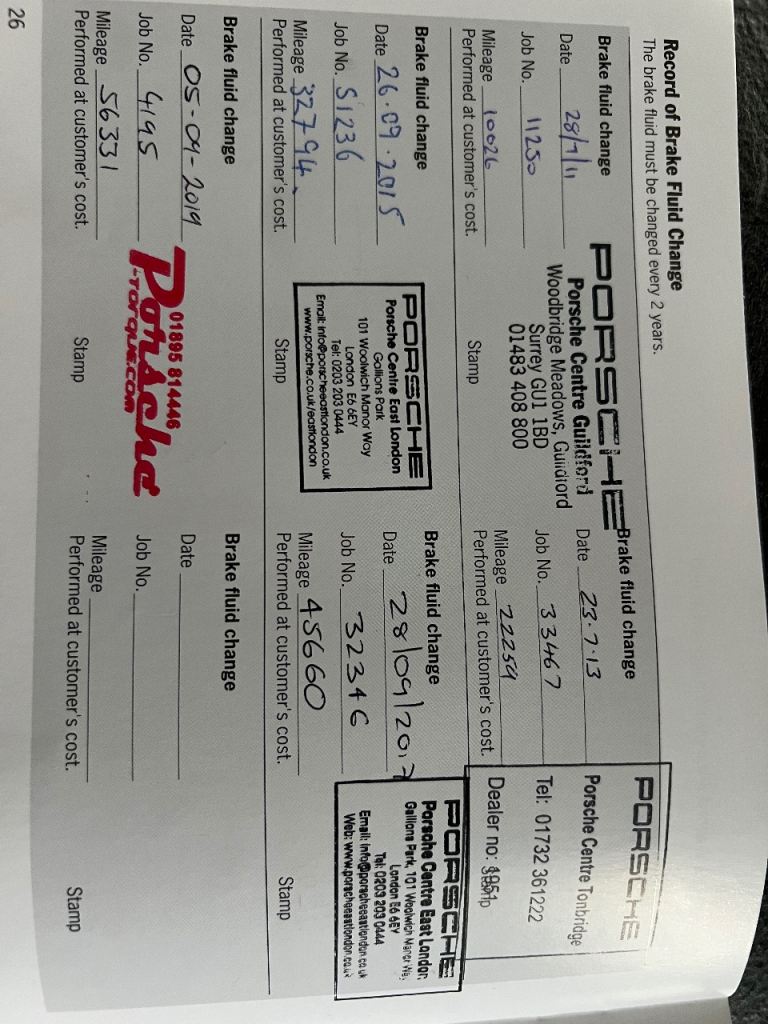 Record of Brake Fluid Change
The brake fluid must be changed every 2 years.
Brake fluid change
Date 28/7/11
Job No. 11250
Mileage 10026
Performed at customer's cost.
Stamp
PORSCHE
Porsche Centre Guildford
Woodbridge Meadows, Guildford
Surrey GU1 1BD
01483 408 800
Brake fluid change
Date 23.7.13
Job No. 33467
Mileage 22259
Performed at customer's cost.
Stamp
PORSCHE
Porsche Centre Tonbridge
Tel: 01732 361222
Dealer no:
Brake fluid change
Date 26.09.2015
Job No. 51236
Mileage 32794.
Performed at customer's cost.
Stamp
PORSCHE
Porsche Centre East London
Gallions Park
101 Woolwich Manor Way
London E6 6EY
Tel: 0203 203 0444
Email: info@porscheeastlondon.co.uk
www.porsche.co.uk/eastlondon
Brake fluid change
Date 28/09/2017
Job No. 32346
Mileage 45660
Performed at customer's cost.
Stamp
PORSCHE
Porsche Centre East London
Gallions Park, 101 Woolwich Manor Way,
London E6 6EY
Tel: 0203 203 0444
Email: info@porscheeastlondon.co.uk
Web: www.porscheeastlondon.co.uk
Brake fluid change
Date 05-09-2019
Job No. 4195
Mileage 56331
Performed at customer's cost.
Stamp
01895 814446
Porsche
i-Torque.com
Brake fluid change
Date
Job No.
Mileage
Performed at customer's cost.
Stamp
26